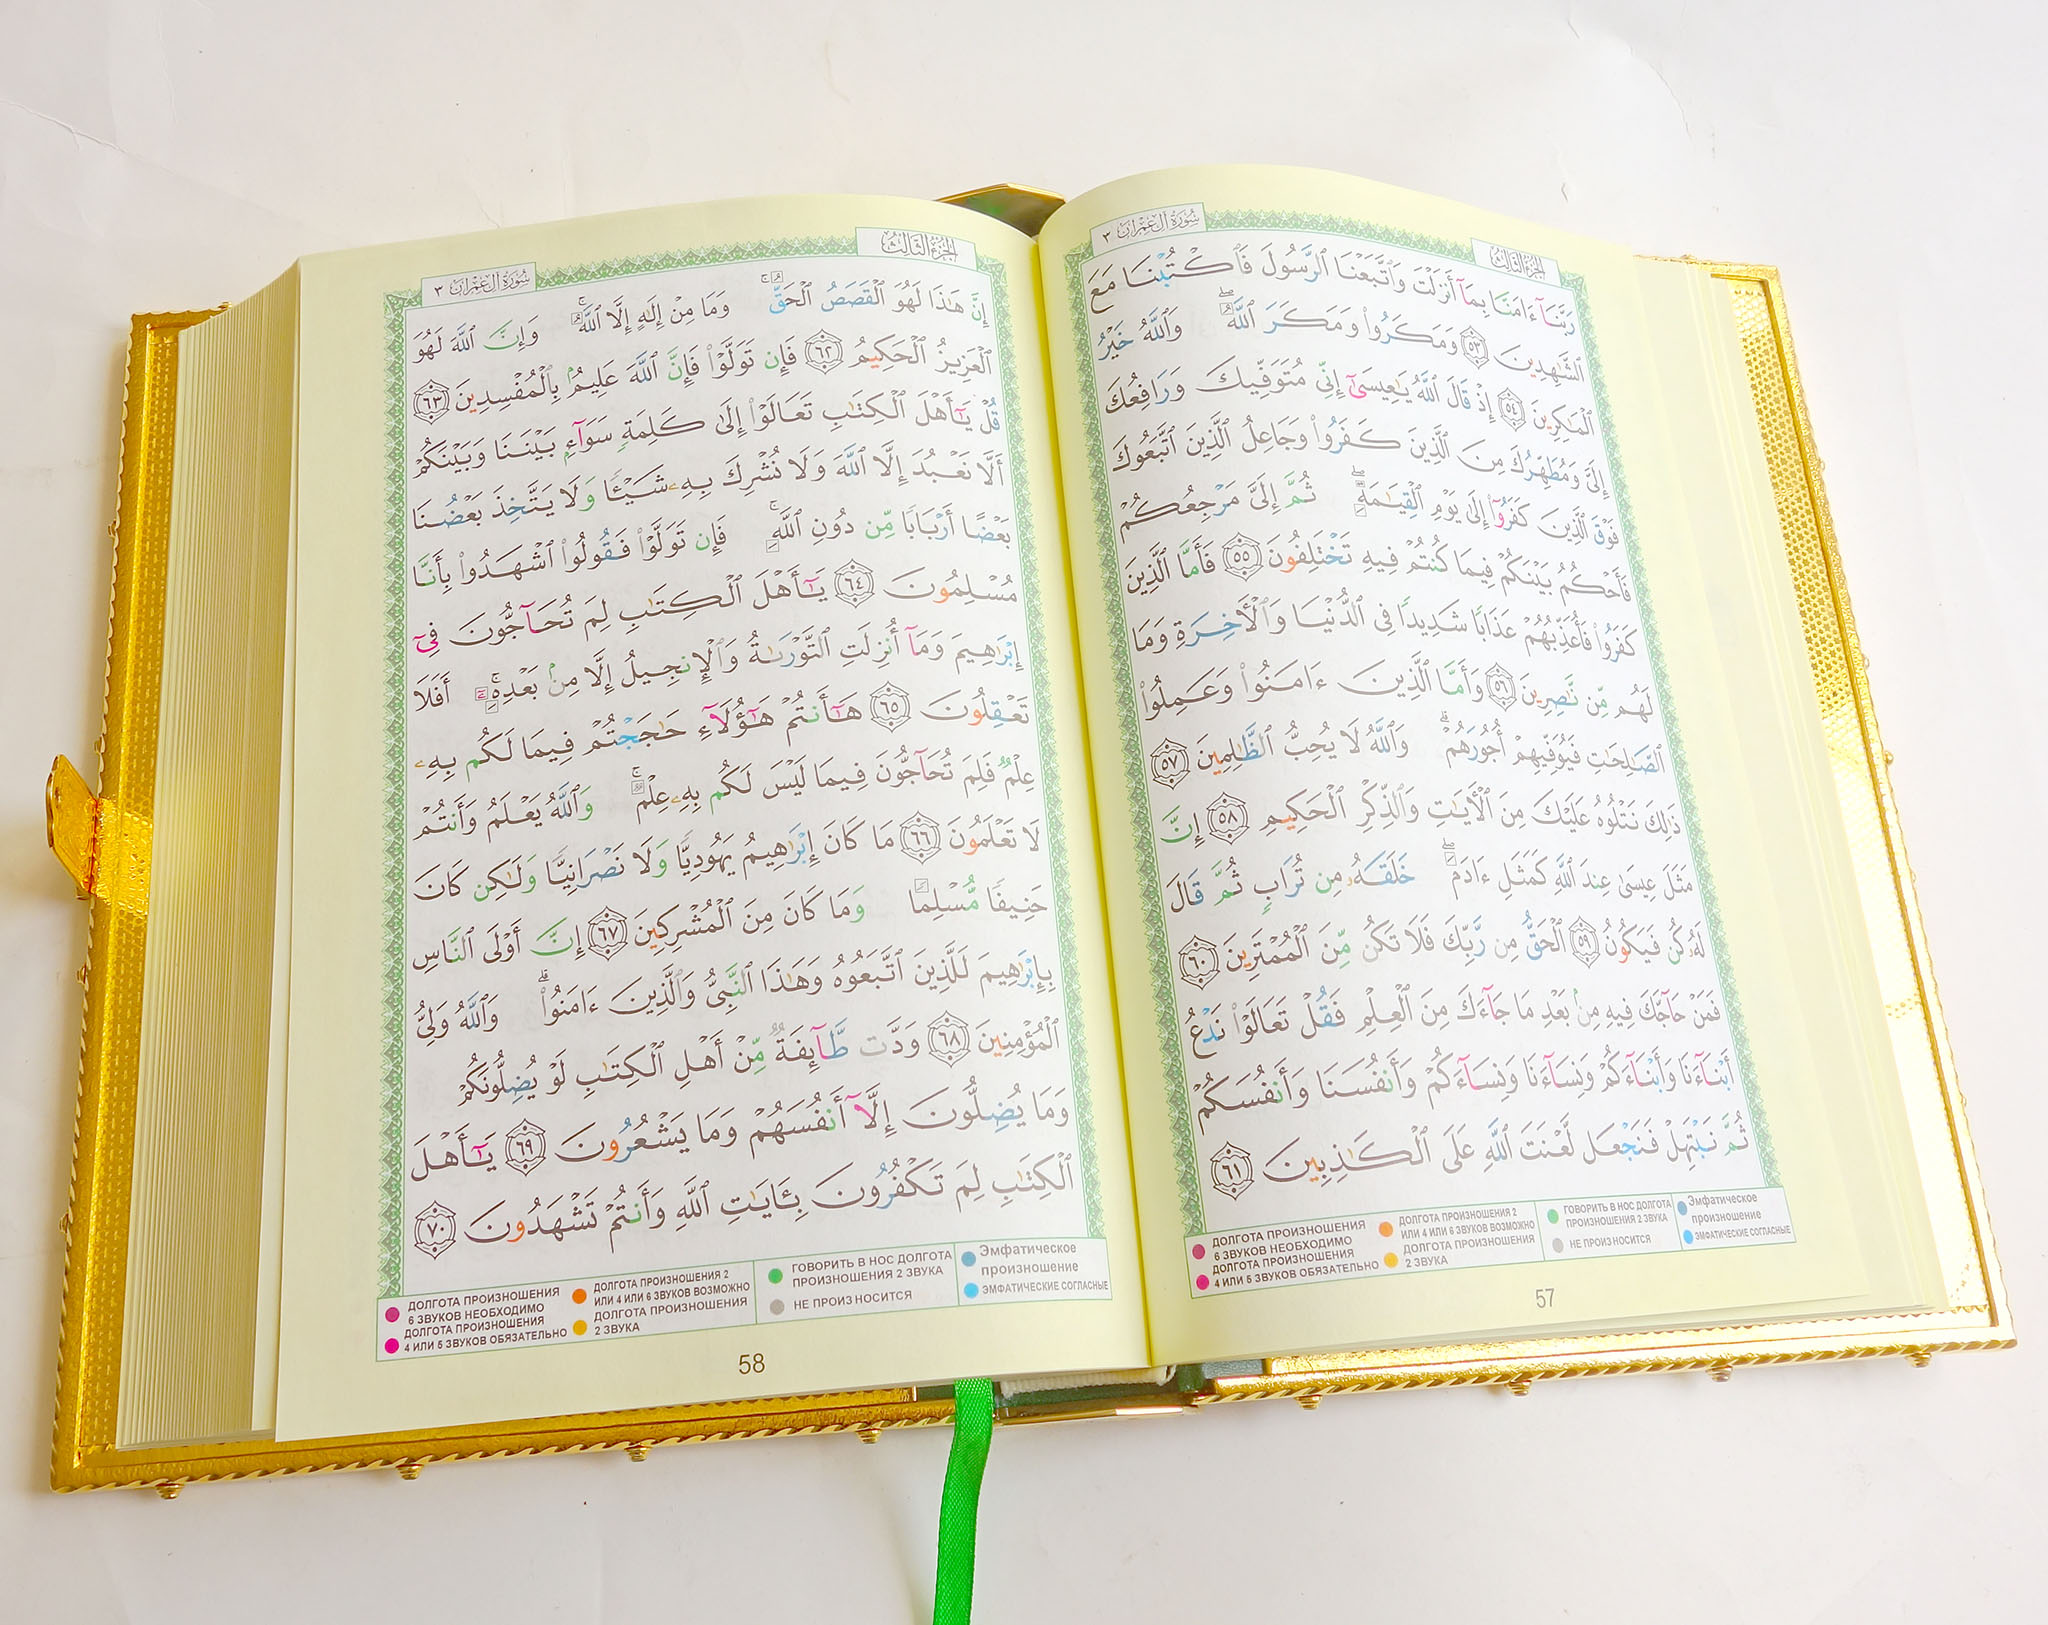 الجزء الثالث
سورة آل عمران ٣
رَبَّنَآ ءَامَنَّا بِمَآ أَنزَلْتَ وَٱتَّبَعْنَا ٱلرَّسُولَ فَٱكْتُبْنَا مَعَ
ٱلشَّٰهِدِينَ ٥٣ وَمَكَرُوا۟ وَمَكَرَ ٱللَّهُ ۖ وَٱللَّهُ خَيْرُ
ٱلْمَٰكِرِينَ ٥٤ إِذْ قَالَ ٱللَّهُ يَٰعِيسَىٰٓ إِنِّى مُتَوَفِّيكَ وَرَافِعُكَ
إِلَىَّ وَمُطَهِّرُكَ مِنَ ٱلَّذِينَ كَفَرُوا۟ وَجَاعِلُ ٱلَّذِينَ ٱتَّبَعُوكَ
فَوْقَ ٱلَّذِينَ كَفَرُوٓا۟ إِلَىٰ يَوْمِ ٱلْقِيَٰمَةِ ۖ ثُمَّ إِلَىَّ مَرْجِعُكُمْ
فَأَحْكُمُ بَيْنَكُمْ فِيمَا كُنتُمْ فِيهِ تَخْتَلِفُونَ ٥٥ فَأَمَّا ٱلَّذِينَ
كَفَرُوا۟ فَأُعَذِّبُهُمْ عَذَابًا شَدِيدًا فِى ٱلدُّنْيَا وَٱلْأَخِرَةِ وَمَا
لَهُم مِّن نَّٰصِرِينَ ٥٦ وَأَمَّا ٱلَّذِينَ ءَامَنُوا۟ وَعَمِلُوا۟
ٱلصَّٰلِحَٰتِ فَيُوَفِّيهِمْ أُجُورَهُمْ ۗ وَٱللَّهُ لَا يُحِبُّ ٱلظَّٰلِمِينَ ٥٧
ذَٰلِكَ نَتْلُوهُ عَلَيْكَ مِنَ ٱلْأَيَٰتِ وَٱلذِّكْرِ ٱلْحَكِيمِ ٥٨ إِنَّ
مَثَلَ عِيسَىٰ عِندَ ٱللَّهِ كَمَثَلِ ءَادَمَ ۖ خَلَقَهُۥ مِن تُرَابٍ ثُمَّ قَالَ
لَهُۥ كُن فَيَكُونُ ٥٩ ٱلْحَقُّ مِن رَّبِّكَ فَلَا تَكُن مِّنَ ٱلْمُمْتَرِينَ ٦٠
فَمَنْ حَآجَّكَ فِيهِ مِنۢ بَعْدِ مَا جَآءَكَ مِنَ ٱلْعِلْمِ فَقُلْ تَعَالَوْا۟ نَدْعُ
أَبْنَآءَنَا وَأَبْنَآءَكُمْ وَنِسَآءَنَا وَنِسَآءَكُمْ وَأَنفُسَنَا وَأَنفُسَكُمْ
ثُمَّ نَبْتَهِلْ فَنَجْعَل لَّعْنَتَ ٱللَّهِ عَلَى ٱلْكَٰذِبِينَ ٦١
ДОЛГОТА ПРОИЗНОШЕНИЯ
6 ЗВУКОВ НЕОБХОДИМО
ДОЛГОТА ПРОИЗНОШЕНИЯ
4 ИЛИ 5 ЗВУКОВ ОБЯЗАТЕЛЬНО
ДОЛГОТА ПРОИЗНОШЕНИЯ 2
ИЛИ 4 ИЛИ 6 ЗВУКОВ ВОЗМОЖНО
ДОЛГОТА ПРОИЗНОШЕНИЯ
2 ЗВУКА
ГОВОРИТЬ В НОС ДОЛГОТА
ПРОИЗНОШЕНИЯ 2 ЗВУКА
НЕ ПРОИЗНОСИТСЯ
Эмфатическое
произношение
ЭМФАТИЧЕСКИЕ СОГЛАСНЫЕ
57
الجزء الثالث
سورة آل عمران ٣
إِنَّ هَٰذَا لَهُوَ ٱلْقَصَصُ ٱلْحَقُّ ۚ وَمَا مِنْ إِلَٰهٍ إِلَّا ٱللَّهُ ۚ وَإِنَّ ٱللَّهَ لَهُوَ
ٱلْعَزِيزُ ٱلْحَكِيمُ ٦٢ فَإِن تَوَلَّوْا۟ فَإِنَّ ٱللَّهَ عَلِيمٌۢ بِٱلْمُفْسِدِينَ ٦٣
قُلْ يَٰٓأَهْلَ ٱلْكِتَٰبِ تَعَالَوْا۟ إِلَىٰ كَلِمَةٍ سَوَآءٍۭ بَيْنَنَا وَبَيْنَكُمْ
أَلَّا نَعْبُدَ إِلَّا ٱللَّهَ وَلَا نُشْرِكَ بِهِۦ شَيْـًٔا وَلَا يَتَّخِذَ بَعْضُنَا
بَعْضًا أَرْبَابًا مِّن دُونِ ٱللَّهِ ۚ فَإِن تَوَلَّوْا۟ فَقُولُوا۟ ٱشْهَدُوا۟ بِأَنَّا
مُسْلِمُونَ ٦٤ يَٰٓأَهْلَ ٱلْكِتَٰبِ لِمَ تُحَآجُّونَ فِىٓ
إِبْرَٰهِيمَ وَمَآ أُنزِلَتِ ٱلتَّوْرَىٰةُ وَٱلْإِنجِيلُ إِلَّا مِنۢ بَعْدِهِۦٓ ۚ أَفَلَا
تَعْقِلُونَ ٦٥ هَٰٓأَنتُمْ هَٰٓؤُلَآءِ حَٰجَجْتُمْ فِيمَا لَكُم بِهِۦ
عِلْمٌ فَلِمَ تُحَآجُّونَ فِيمَا لَيْسَ لَكُم بِهِۦ عِلْمٌ ۚ وَٱللَّهُ يَعْلَمُ وَأَنتُمْ
لَا تَعْلَمُونَ ٦٦ مَا كَانَ إِبْرَٰهِيمُ يَهُودِيًّا وَلَا نَصْرَانِيًّا وَلَٰكِن كَانَ
حَنِيفًا مُّسْلِمًا وَمَا كَانَ مِنَ ٱلْمُشْرِكِينَ ٦٧ إِنَّ أَوْلَى ٱلنَّاسِ
بِإِبْرَٰهِيمَ لَلَّذِينَ ٱتَّبَعُوهُ وَهَٰذَا ٱلنَّبِىُّ وَٱلَّذِينَ ءَامَنُوا۟ ۗ وَٱللَّهُ وَلِىُّ
ٱلْمُؤْمِنِينَ ٦٨ وَدَّت طَّآئِفَةٌ مِّنْ أَهْلِ ٱلْكِتَٰبِ لَوْ يُضِلُّونَكُمْ
وَمَا يُضِلُّونَ إِلَّآ أَنفُسَهُمْ وَمَا يَشْعُرُونَ ٦٩ يَٰٓأَهْلَ
ٱلْكِتَٰبِ لِمَ تَكْفُرُونَ بِـَٔايَٰتِ ٱللَّهِ وَأَنتُمْ تَشْهَدُونَ ٧٠
ДОЛГОТА ПРОИЗНОШЕНИЯ
6 ЗВУКОВ НЕОБХОДИМО
ДОЛГОТА ПРОИЗНОШЕНИЯ
4 ИЛИ 5 ЗВУКОВ ОБЯЗАТЕЛЬНО
ДОЛГОТА ПРОИЗНОШЕНИЯ 2
ИЛИ 4 ИЛИ 6 ЗВУКОВ ВОЗМОЖНО
ДОЛГОТА ПРОИЗНОШЕНИЯ
2 ЗВУКА
ГОВОРИТЬ В НОС ДОЛГОТА
ПРОИЗНОШЕНИЯ 2 ЗВУКА
НЕ ПРОИЗНОСИТСЯ
Эмфатическое
произношение
ЭМФАТИЧЕСКИЕ СОГЛАСНЫЕ
58